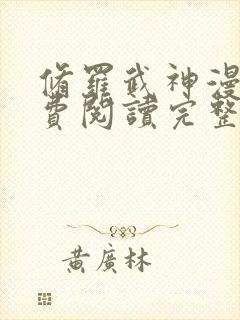 脩羅武神漫
費閱讀完整
黃廣林